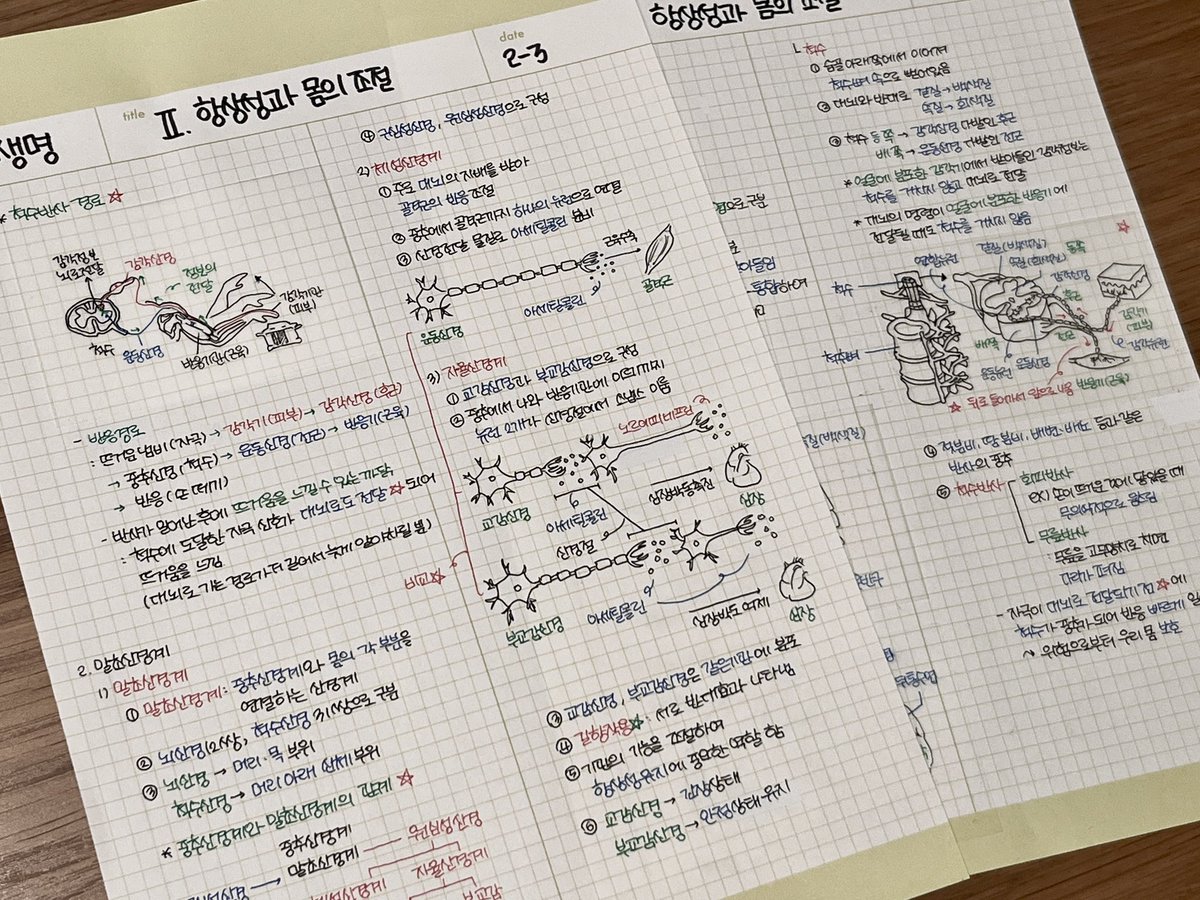 생명
title
Ⅱ. 항상성과 몸의 조절
date
2-3
* 척수반사 경로 ☆
감각정보
뇌로 전달
감각신경
정보의
전달
감각기관
(피부)
척수
운동신경
반응기관(근육)
- 반응경로
: 뜨거운 냄비(자극) → 감각기(피부) → 감각신경(후근)
→ 중추신경(척수) → 운동신경(전근) → 반응기(근육)
→ 반응(손 떼기)
- 반사가 일어난 후에 뜨거움을 느낄 수 있는 까닭
: 척수에 도달한 자극 신호가 대뇌로도 전달☆되어
뜨거움을 느낌
(대뇌로 가는 경로가 더 길어서 늦게 알아차릴 뿐)
2. 말초신경계
1) 말초신경계
① 말초신경계: 중추신경계와 몸의 각 부분을
연결하는 신경계
② 뇌신경12쌍, 척수신경 31쌍으로 구분
③ 뇌신경 → 머리·목 부위
척수신경 → 머리 아래 신체 부위
* 중추신경계와 말초신경계의 관계 ☆
중추신경계
말초신경계
원심성신경
체성신경계
자율신경계
부교감
④ 구심성신경, 원심성신경으로 구성
2) 체성신경계
① 주로 대뇌의 지배를 받아
골격근의 반응 조절
② 중추에서 골격근까지 하나의 뉴런으로 연결
③ 신경전달 물질로 아세틸콜린 분비
근육수축
골격근
아세틸콜린
운동신경
3) 자율신경계
① 교감신경과 부교감신경으로 구성
② 중추에서 나와 반응기관에 이르기까지
뉴런 2개가 신경절에서 시냅스 이룸
노르에피네프린
교감신경
아세틸콜린
심장박동촉진
심장
신경절
비교☆
부교감신경
아세틸콜린
심장박동 억제
심장
③ 교감신경, 부교감신경은 같은기관에 분포
④ 길항작용☆: 서로 반대효과 나타냄
⑤ 기관의 기능을 조절하여
항상성 유지에 중요한 역할 함
⑥ 교감신경 → 긴장상태
부교감신경 → 안정상태 유지
항상성과 몸의 조절
나. 척수
① 숨골 아래쪽에서 이어져
척수뼈 속으로 뻗어있음
② 대뇌와 반대로 겉질 → 백색질
속질 → 회색질
③ 척수 등 쪽 → 감각신경 다발인 후근
배 쪽 → 운동신경 다발인 전근
* 얼굴에 분포한 감각기에서 받아들인 감각정보는
척수를 거치지 않고 대뇌로 전달
* 대뇌의 명령이 얼굴에 분포한 반응기에
전달될 때도 척수를 거치지 않음
연합뉴런
겉질(백색질)
속질(회색질)
등쪽
감각신경
후근
척수
척수뼈
배쪽
전근
감각기
(피부)
감각뉴런
운동뉴런
운동신경
반응기(근육)
☆ 뒤로 들어가서 앞으로 나옴
④ 젖분비, 땀 분비, 배변·배뇨 등과 같은
반사의 중추
⑤ 척수반사
회피반사
ex) 손이 뜨거운 것에 닿았을 때
무의식적으로 움츠림
무릎반사
무릎을 고무망치로 치면
다리가 펴짐
- 자극이 대뇌로 전달되기 전☆에
척수가 중추가 되어 반응 빠르게 일
~ 위험으로부터 우리 몸 보호